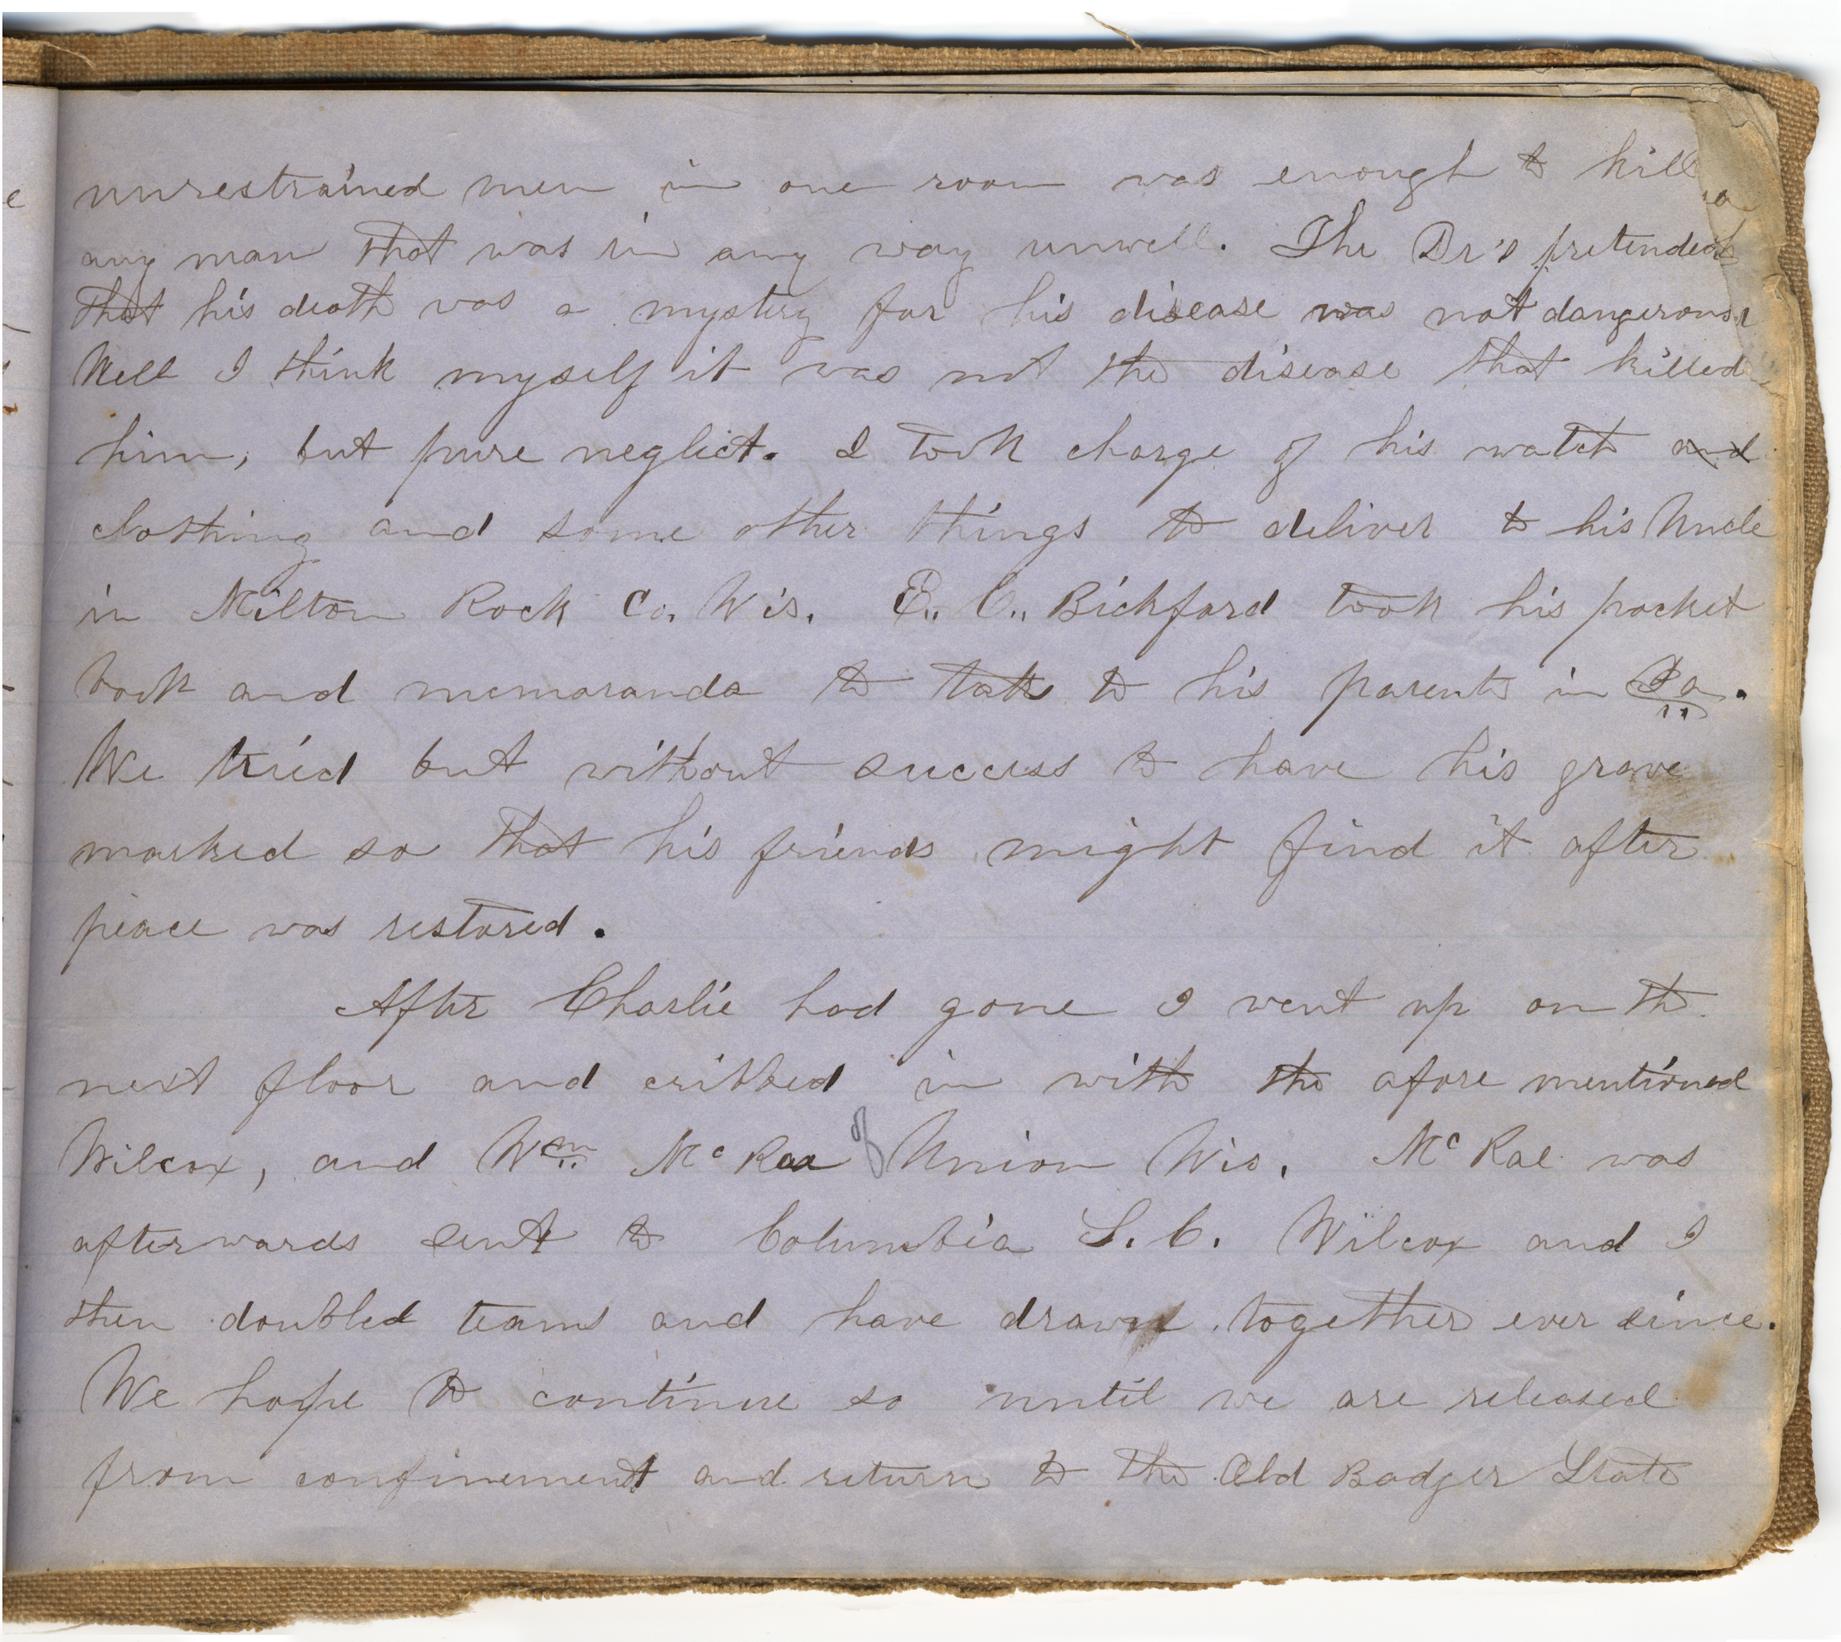 unrestrained men in one room was enough to kill
any man that was in any way unwell. The Dr's pretended
that his death was a mystery for his disease was not dangerous
Well I think myself it was not the disease that killed
him, but pure neglect. I took charge of his watch and
clothing and some other things to deliver to his Uncle
in Milton Rock Co. Wis. E.. C.. Bickford took his pocket
book and memoranda to take to his parents in Pa.
We tried but without success to have his grave
marked so that his friends might find it after
peace was restored.
After Charlie had gone I went up on the
next floor and cribbed in with the afore mentioned
Wilcox, and Wm McRae of Union Wis. McRae was
afterwards sent to Columbia S. C. Wilcox and I
then doubled teams and have drawn together ever since.
We hope to continue so until we are released
from confinement and return to the Old Badger State